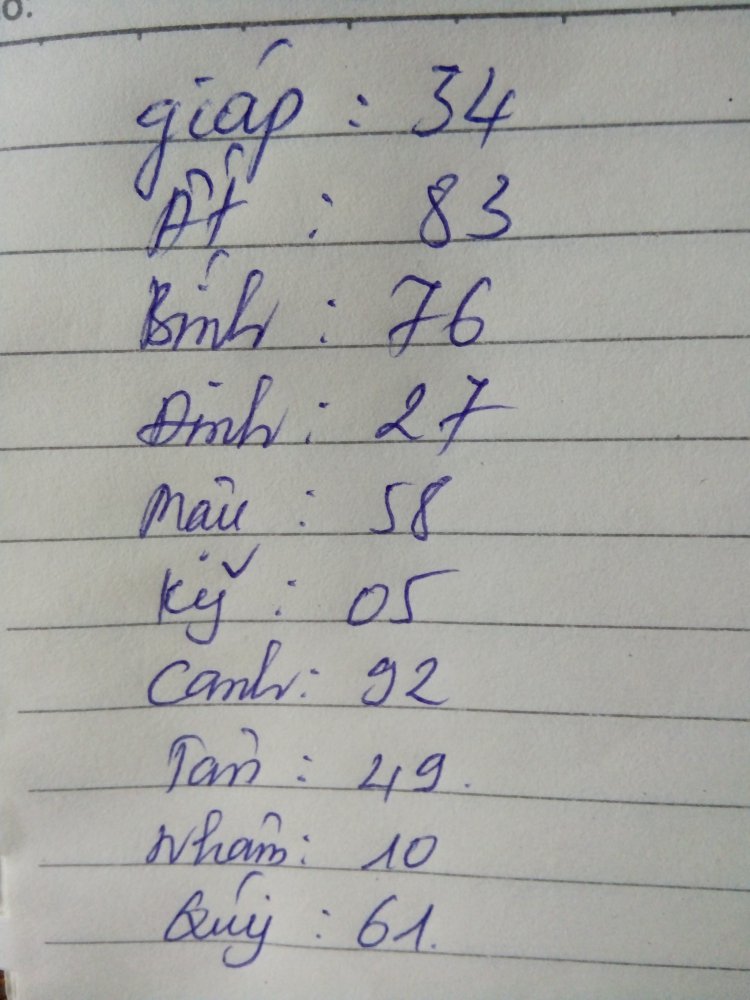 giáp : 34
Ất : 83
Bính : 76
Đinh : 27
Mậu : 58
Kỷ : 05
Canh : 92
Tân : 49.
Nhâm : 10
Quý : 61.